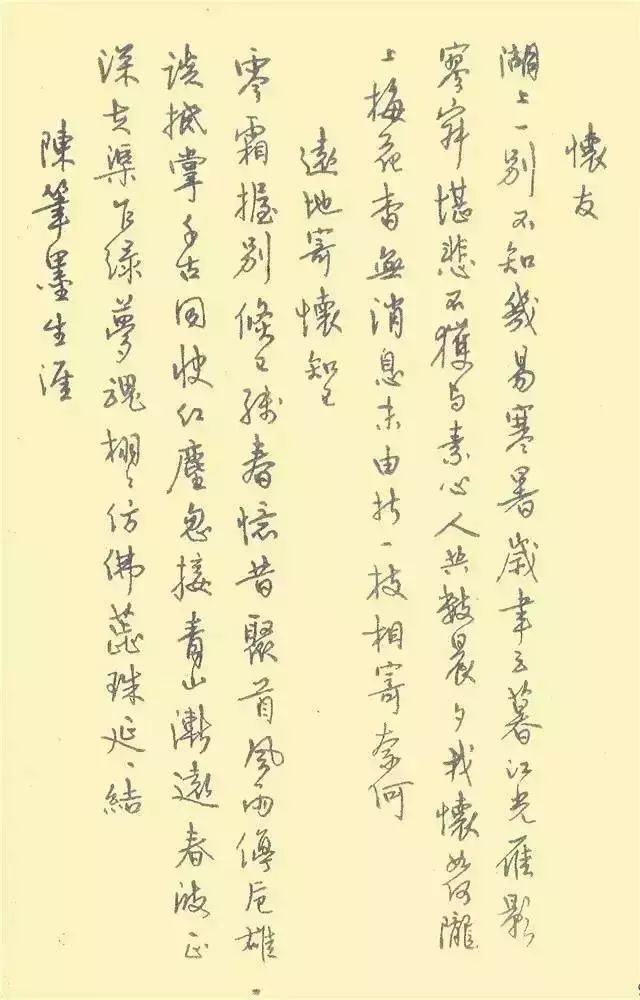 懷友
湖上一别不知幾易寒暑歲聿云暮江光雁影
寥寂堪悲不獲与素心人共数晨夕我懷如何隴
上梅花杳無消息未由折一枝相寄奈何
遠地寄懷知己
零霜握别倏已残春憶昔聚首風雨傳卮雄
談抵掌千古同快红塵忽接青山漸遠春波正
深芳渠乍緑夢魂栩々仿佛蕊珠延結
陳筆墨生涯